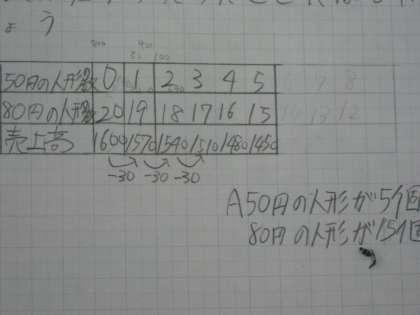 ょう
50円の人形数 0 1 2 3 4 5
80円の人形数 20 19 18 17 16 15
売上高 1600 1570 1540 1510 1480 1450
-30 -30 -30
A50円の人形が5個
80円の人形が15個